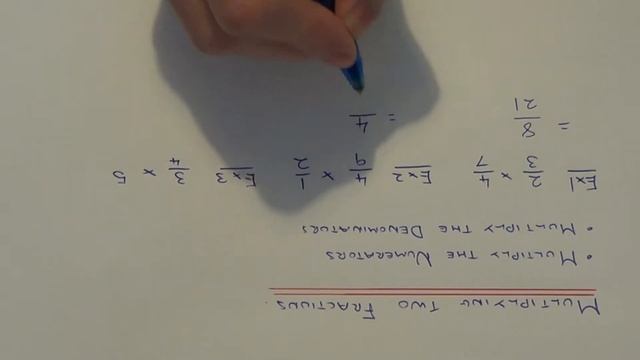 MULTIPLYING TWO FRACTIONS.
• MULTIPLY THE NUMERATORS
• MULTIPLY THE DENOMINATORS
Ex1 2/3 × 4/7 Ex2 4/9 × 1/2 Ex3 3/4 × 5
= 8/21 = 4/